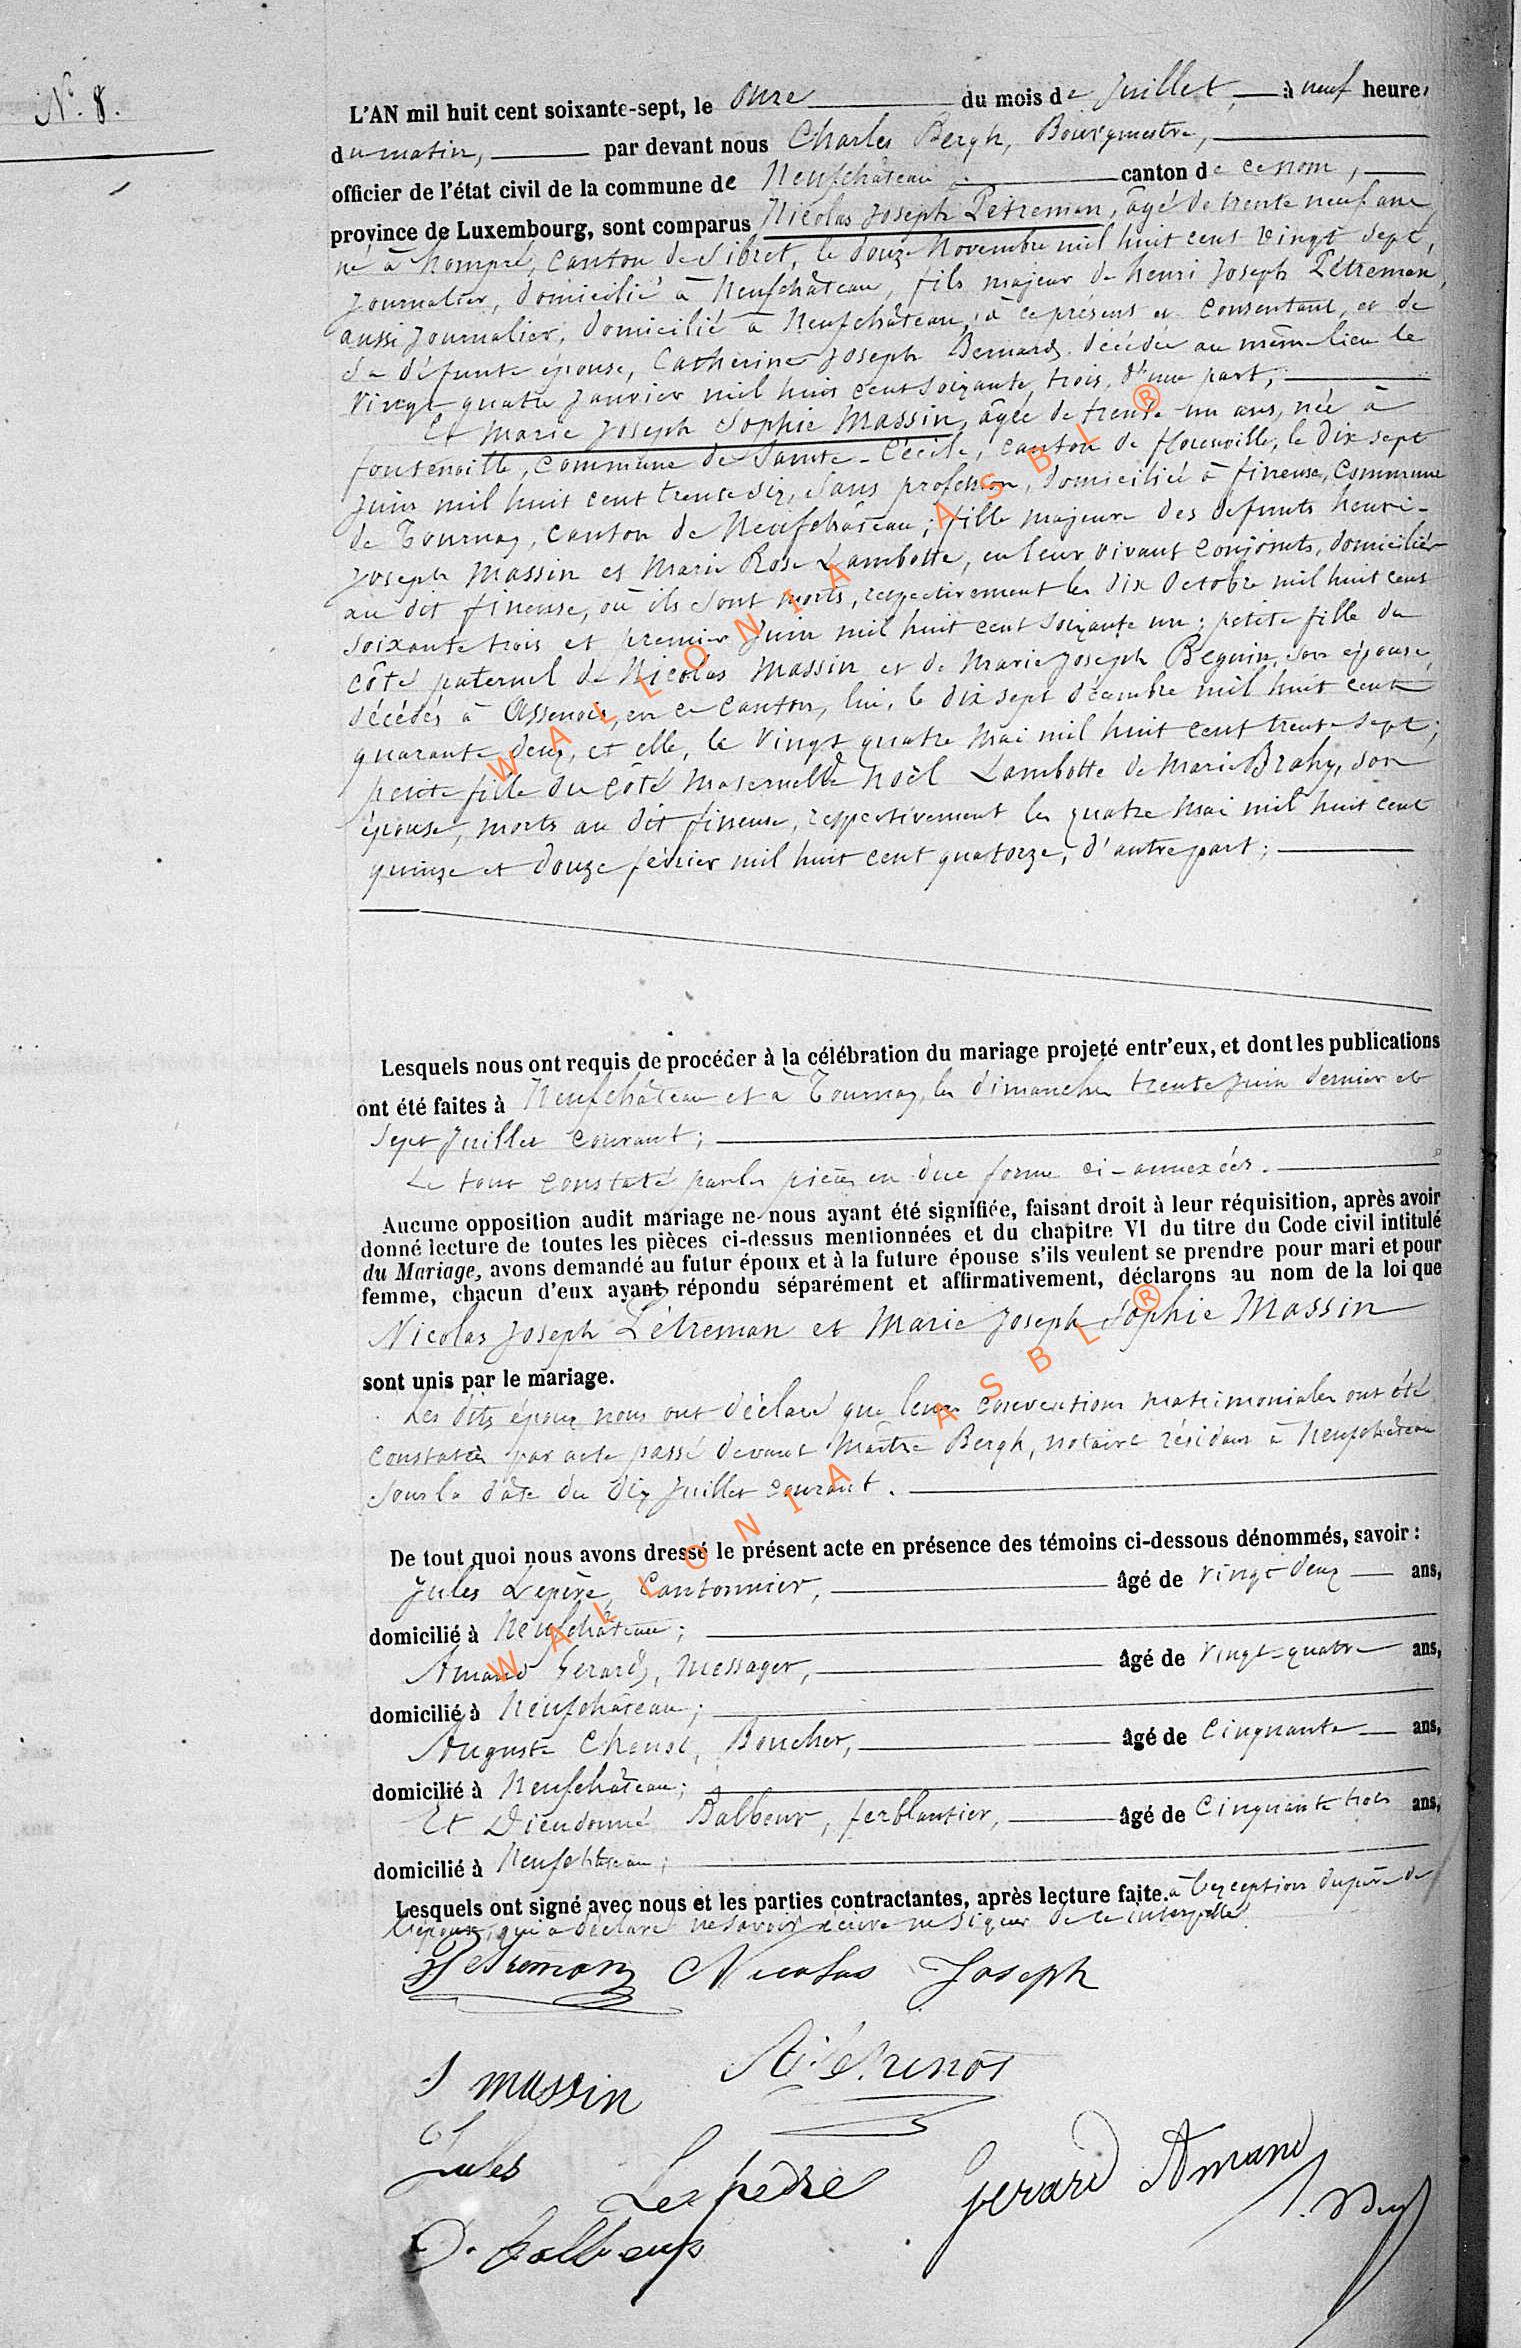 N° 8.
L'AN mil huit cent soixante-sept, le onze du mois de Juillet, à neuf heures
du matin, par devant nous Charles Bergh, Bourgmestre,
officier de l'état civil de la commune de Neufchâteau canton de ce nom,
province de Luxembourg, sont comparus Nicolas Joseph Pétreman, âgé de trente neuf ans,
né à hompré, canton de Sibret, le douze Novembre mil huit cent vingt sept,
journalier, domicilié à Neufchâteau, fils majeur de henri Joseph Pétreman,
aussi journalier, domicilié à Neufchâteau, à ce présent et consentant, et de
sa défunte épouse, Catherine Joseph Bernard, décédée au même lieu le
vingt quatre Janvier mil huit cent soixante trois, d'une part,
Et Marie Joseph Sophie Massin, âgée de trente un ans, née à
fontenoille, commune de Sainte-Cécile, canton de florenville, le dix sept
juin mil huit cent trente six, sans profession, domiciliée à fineuse, commune
de Tournay, canton de Neufchâteau; fille majeure des défunts henri-
Joseph Massin et Marie Rose Lambotte, en leur vivant conjoints, domiciliés
au dit fineuse, où ils sont morts, respectivement les dix octobre mil huit cent
soixante trois et premier Juin mil huit cent soixante un; petite fille du
côté paternel de Nicolas Massin et de Marie Joseph Beguin, son épouse,
décédés à Assenois, en ce canton, lui, le dix sept décembre mil huit cent
quarante deux, et elle, le vingt quatre mai mil huit cent trente sept;
petite fille du côté maternelle de Noël Lambotte de Marie Brahy, son
épouse, morts au dit fineuse, respectivement les quatre mai mil huit cent
quinze et douze février mil huit cent quatorze, d'autre part;
Lesquels nous ont requis de procéder à la célébration du mariage projeté entr'eux, et dont les publications
ont été faites à Neufchâteau et à Tournay, les dimanches trente juin dernier et
sept Juillet courant;
Le tout constaté par les pièces en due forme ci-annexées.
Aucune opposition audit mariage ne nous ayant été signifiée, faisant droit à leur réquisition, après avoir
donné lecture de toutes les pièces ci-dessus mentionnées et du chapitre VI du titre du Code civil intitulé
du Mariage, avons demandé au futur époux et à la future épouse s'ils veulent se prendre pour mari et pour
femme, chacun d'eux ayant répondu séparément et affirmativement, déclarons au nom de la loi que
Nicolas Joseph Pétreman et Marie Joseph Sophie Massin
sont unis par le mariage.
Les dits époux nous ont déclaré que leurs conventions matrimoniales ont été
constatées par acte passé devant Maître Bergh, notaire résidant à Neufchâteau
sous la date du dix Juillet courant.
De tout quoi nous avons dressé le présent acte en présence des témoins ci-dessous dénommés, savoir :
Jules Lepère, Cantonnier, âgé de vingt deux ans,
domicilié à Neufchâteau;
Amand Gerard, Messager, âgé de vingt-quatre ans,
domicilié à Neufchâteau;
Auguste Chenot, Boucher, âgé de cinquante ans,
domicilié à Neufchâteau;
Et Dieudonné Balbeur, ferblantier, âgé de cinquante trois ans,
domicilié à Neufchâteau;
Lesquels ont signé avec nous et les parties contractantes, après lecture faite. à l'exception du père de
l'époux, qui a déclaré ne savoir écrire ni signer de ce interpellé.
Petremon Nicolas Joseph
S massin
Jules Lepere Gerard Amand
D. Balbeur
WALLONIA ASBL ®
WALLONIA ASBL ®